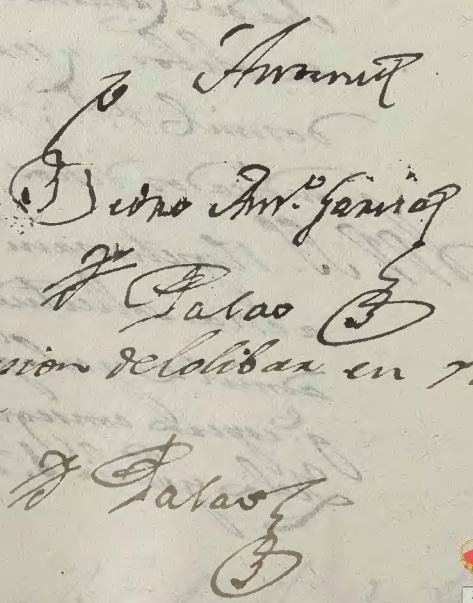 Antt.
Pedro Ant.º Garcia
y Palao
sion del olibar en
y Palao